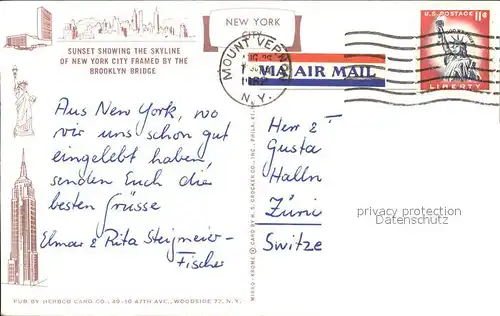 NEW YORK
CITY
U.S. POSTAGE 11¢
LIBERTY
SUNSET SHOWING THE SKYLINE
OF NEW YORK CITY FRAMED BY THE
BROOKLYN BRIDGE
MOUNT VERNON
N.Y.
VIA AIR MAIL
Aus New York, wo
wir uns schon gut
eingelebt haben,
senden Euch die
besten Grüsse
Elmar & Rita Steigmeier-
Fischer
Herr &
Gusta
Halln
Züri
Switze
privacy protection
MIRRO-KROME ® CARD BY H.S. CROCKER CO., INC., PHILA. 41
PUB BY HERBCO CARD CO., 49-10 47TH AVE., WOODSIDE 77, N.Y.